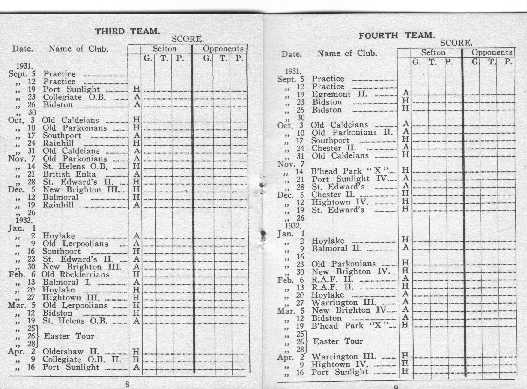 THIRD TEAM.
SCORE.
Date. Name of Club. Sefton Opponents
G. T. P. G. T. P.
1931.
Sept. 5 Practice
„ 12 Practice
„ 19 Port Sunlight H
„ 23 Collegiate O.B. A
„ 26 Bidston A
„ 30
Oct. 3 Old Caldeians H
„ 10 Old Parkonians H
„ 17 Southport A
„ 24 Rainhill H
„ 31 Old Caldeians A
Nov. 7 Old Parkonians A
„ 14 St. Helens O.B. H
„ 21 British Enka A
„ 28 St. Edward's II. H
Dec. 5 New Brighton III. H
„ 12 Balmoral H
„ 19 Rainhill A
„ 26
1932.
Jan. 1
„ 2 Hoylake A
„ 9 Old Lerpoolians A
„ 16 Southport H
„ 23 St. Edward's II. A
„ 30 New Brighton III. A
Feb. 6 Old Rockferrians H
„ 13 Balmoral I. A
„ 20 Hoylake H
„ 27 Hightown III. H
Mar. 5 Old Lerpoolians H
„ 12 Bidston H
„ 19 St. Helens O.B. A
„ 25
„ 26 Easter Tour
„ 28
Apr. 2 Oldershaw II. H
„ 9 Collegiate O.B. II. H
„ 16 Port Sunlight A
8
FOURTH TEAM.
SCORE.
Date. Name of Club. Sefton Opponents
G. T. P. G. T. P.
1931.
Sept. 5 Practice
„ 12 Practice
„ 19 Egremont II. A
„ 23 Bidston H
„ 25 Bidston H
„ 30
Oct. 3 Old Caldeians A
„ 10 Old Parkonians II. A
„ 17 Southport H
„ 24 Chester II. A
„ 31 Old Caldeians H
Nov. 7
„ 14 B'head Park "X" H
„ 21 Port Sunlight IV. A
„ 28 St. Edward's A
Dec. 5 Chester II. H
„ 12 Hightown IV. H
„ 19 St. Edward's H
„ 26
1932.
Jan. 1
„ 2 Hoylake H
„ 9 Balmoral II. A
„ 16
„ 23 Old Parkonians H
„ 30 New Brighton IV. H
Feb. 6 R.A.F. II. A
„ 13 R.A.F. II. H
„ 20 Hoylake A
„ 27 Warrington III. A
Mar. 5 New Brighton IV. A
„ 12 Bidston A
„ 19 B'head Park "X" H
„ 25
„ 26 Easter Tour
„ 28
Apr. 2 Warrington III. H
„ 9 Hightown IV. H
„ 16 Port Sunlight H
9